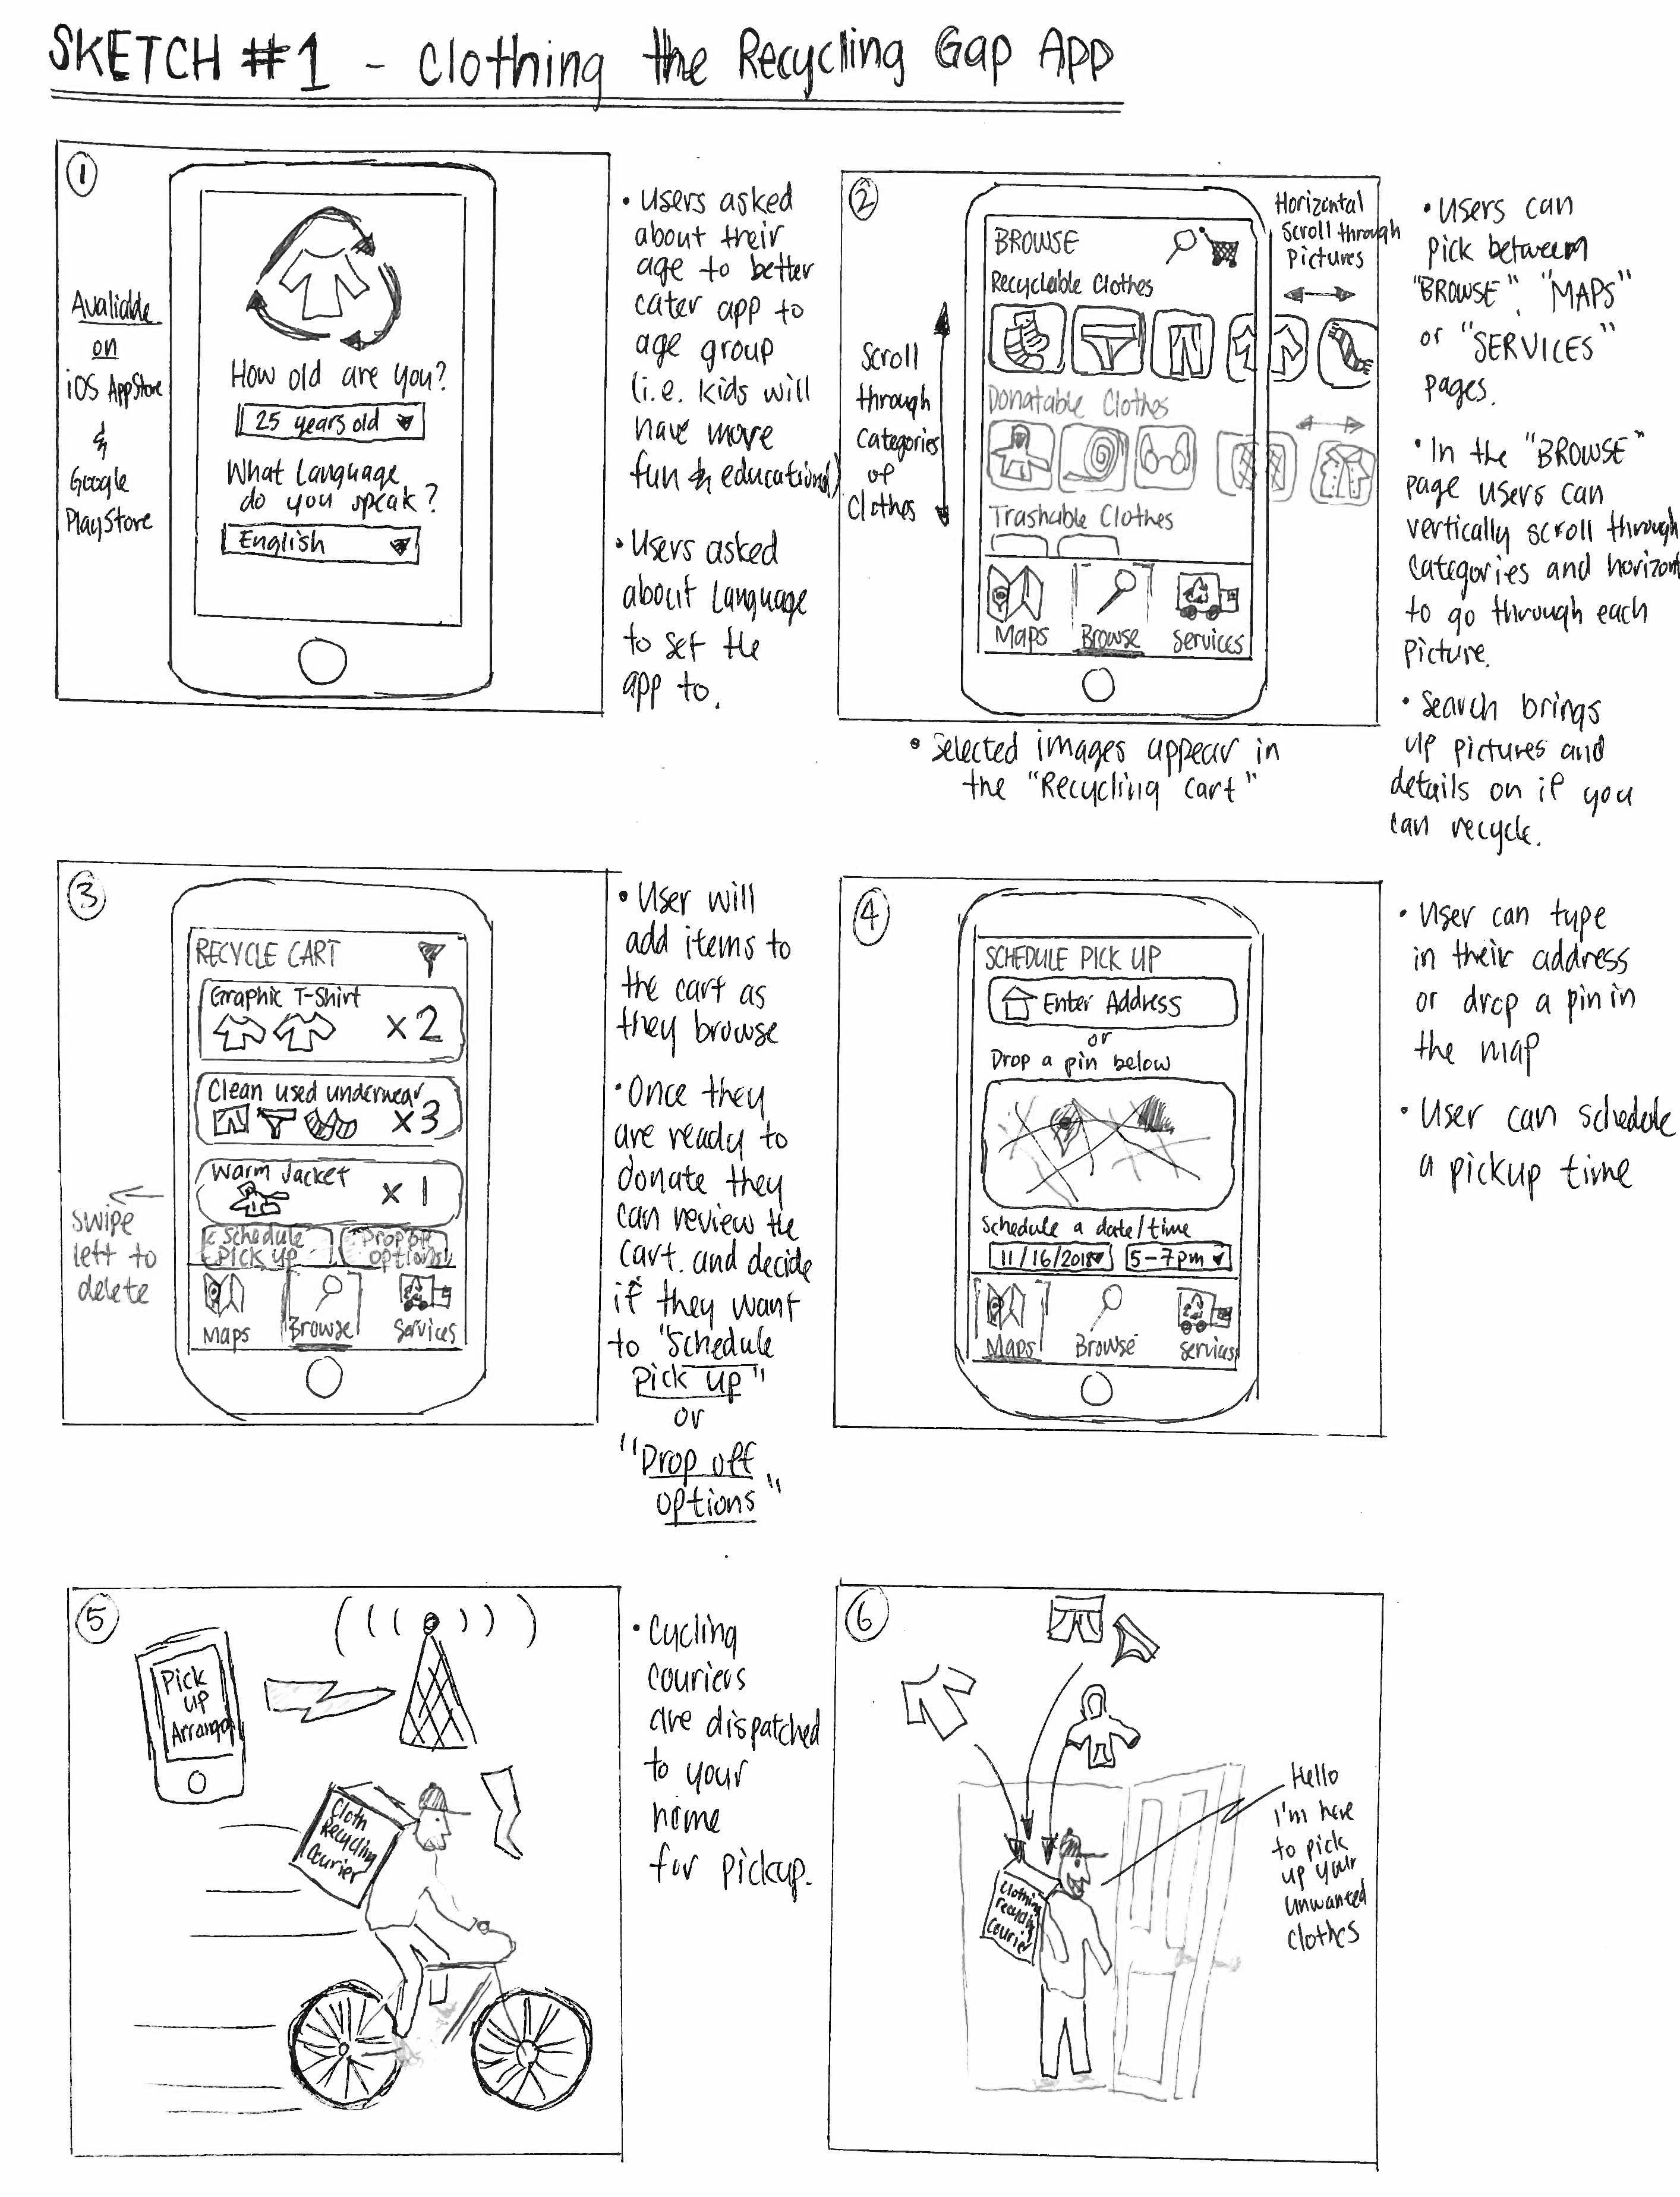 SKETCH #1 - Clothing the Recycling Gap App
1
Avaliable
on
iOS AppStore
&
Google
PlayStore
How old are you?
25 years old
What Language
do you speak?
English
• Users asked
about their
age to better
cater app to
age group
(i.e. kids will
have more
fun & educational)
• Users asked
about language
to set the
app to.
2
Scroll
through
Categories
of
Clothes
BROWSE
Recyclable Clothes
Donatable Clothes
Trashable Clothes
Maps
Browse
Services
Horizontal
Scroll through
Pictures
• Users can
pick between
"BROWSE", "MAPS"
or "SERVICES"
pages.
• In the "BROWSE"
page users can
vertically scroll through
categories and horizont
to go through each
picture.
• Search brings
up pictures and
details on if you
can recycle.
• Selected images appear in
the "Recycling Cart"
3
RECYCLE CART
Graphic T-Shirt
x2
Clean used underwear
x3
Warm Jacket
x1
Schedule
Pick up
Drop off
options
Maps
Browse
Services
Swipe
left to
delete
• User will
add items to
the cart as
they browse
• Once they
are ready to
donate they
can review the
cart. and decide
if they want
to "Schedule
Pick up"
or
"Drop off
options"
4
SCHEDULE PICK UP
Enter Address
or
Drop a pin below
Schedule a date/time
11/16/2018
5-7pm
Maps
Browse
Services
• User can type
in their address
or drop a pin in
the map
• User can schedule
a pickup time
5
Pick
up
Arranged
Cloth
Recycling
Courier
• Cycling
couriers
are dispatched
to your
home
for pickup.
6
Clothing
recycling
Courier
Hello
I'm here
to pick
up your
unwanted
clothes